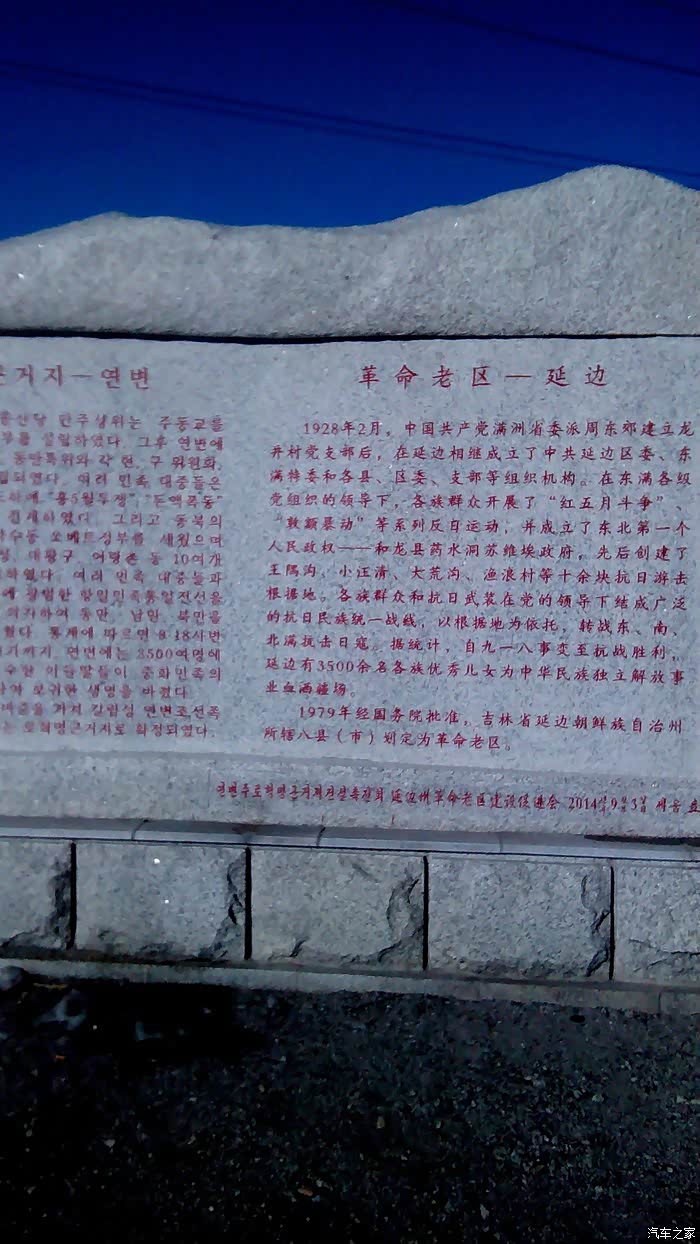 근거지—연변
민주상위는 주동교를
설립하였다. 그후 연변에
동만특위와 각 현, 구 위원회,
여러 민족 대중들은
"홍5월투쟁", "돈액폭동"
전개하였다. 그리고 동북의
쏘베트정부를 세웠으며
대황구, 어랑촌 등 10여개
하였다. 여러 민족 대중들과
항일민족통일전선을
의지하여 동만, 남만, 북만을
통계에 따르면 9.18사변
연변에는 3500여명에
아들딸들이 중화민족의
보귀한 생명을 바쳤다.
비준을 거쳐 길림성 연변조선족
로혁명근거지로 확정되였다.
革命老区—延边
1928年2月，中国共产党满洲省委派周东郊建立龙
井村党支部后，在延边相继成立了中共延边区委、东
满特委和各县、区委、支部等组织机构。在东满各级
党组织的领导下，各族群众开展了“红五月斗争”、
“敦额暴动”等系列反日运动；并成立了东北第一个
人民政权——和龙县药水洞苏维埃政府，先后创建了
王隅沟、小汪清、大荒沟、渔浪村等十余块抗日游击
根据地。各族群众和抗日武装在党的领导下结成广泛
的抗日民族统一战线，以根据地为依托，转战东、南、
北满抗击日寇。据统计，自九一八事变至抗战胜利，
延边有3500余名各族优秀儿女为中华民族独立解放事
业血洒疆场。
1979年经国务院批准，吉林省延边朝鲜族自治州
所辖八县（市）划定为革命老区。
연변주로혁명근거지건설촉진회 延边州革命老区建设促进会 2014년9월3일 세움 立
汽车之家